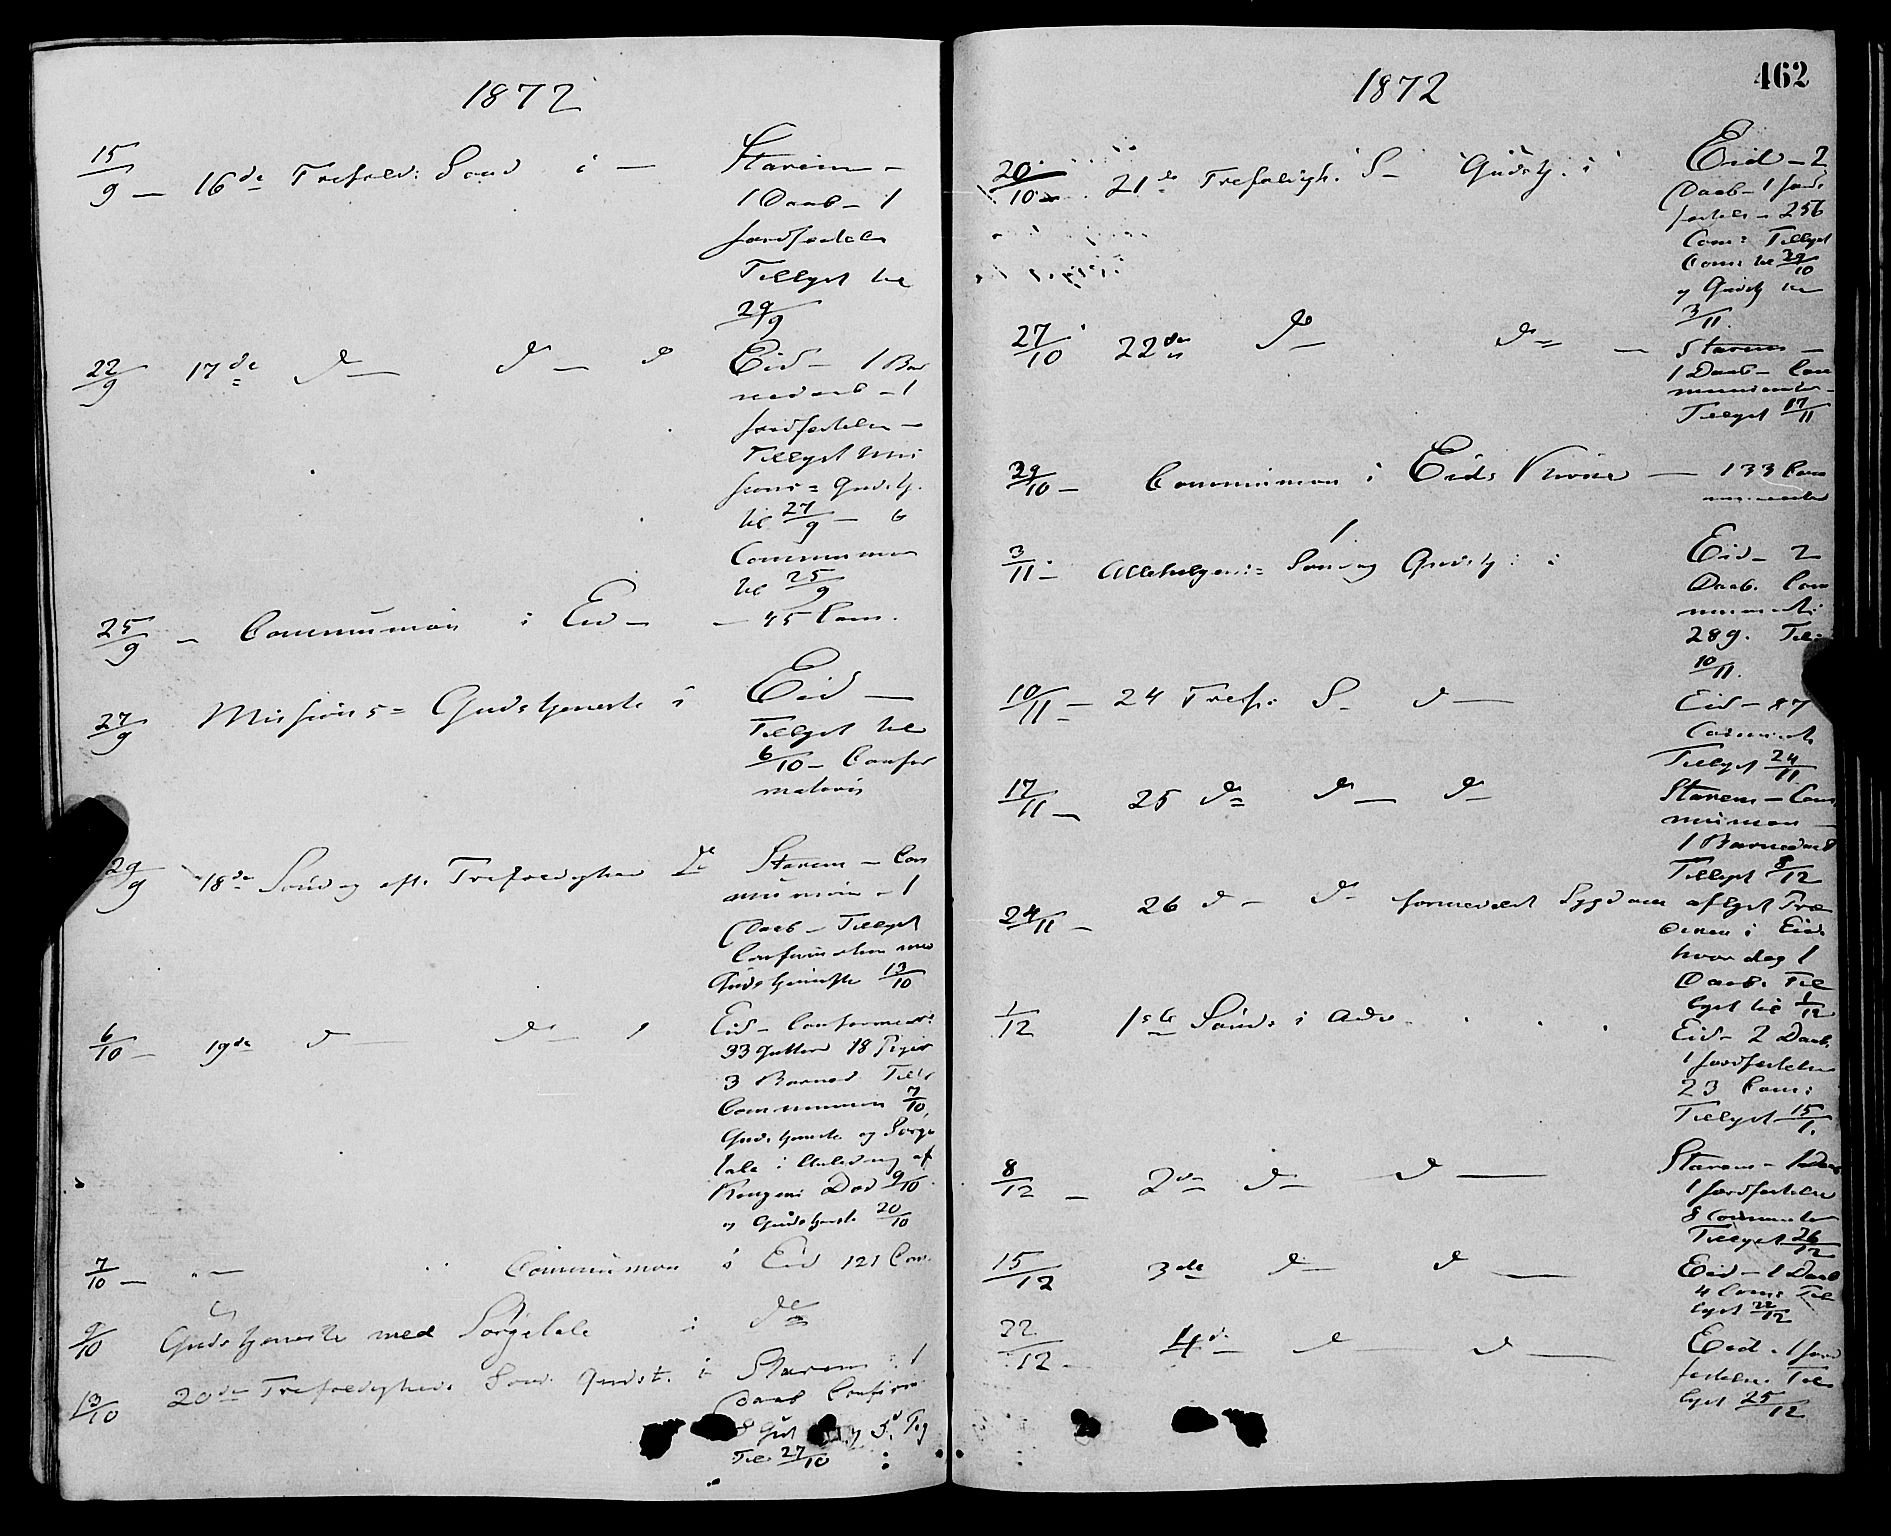 1872
15/9 — 16de Trefold: Sønd i — Starem —
1 Daab — 1
Jordfæstelse
Tillyst til
29/9
22/9 17de d — d — d Eid — 1 Bar
nedaab — 1
Jordfæstelse —
Tillyst Mis
sions= Gudstj.
til 27/9 — &
Communion
til 25/9
25/9 — Communion i Eid — — 45 Com.
27/9 Missions= Gudstjeneste i Eid —
Tillyst til
6/10 — Confir
mation
29/9 18de Søndag eft. Trefoldighed Starem — Com
munion — 1
Daab — Tillyst
Confirmation med
Gudstjeneste 13/10
6/10 — 19de d — d — Eid — Confirmeret
33 Gutter 18 Piger
3 Barned Till:
Communion 7/10,
Gudstjeneste og Sørge
tale i Anledning af
Kongens Død 9/10
og Gudstjeneste 20/10
7/10 — „ — Communion i Eid 121 Com.
9/10 Gudstjeneste med Sørgetale i do
13/10 20de Trefoldigheds Sønd. Gudst. i Starem : 1
Daab Confirm.
8 Gut og 5 Pig
Til. 27/10
1872
462
20/10 21de Trefoldigh. S — Gudstj. i Eid — 2
Daab — 1 Jord
fæstelse — 256
Com: Tillyst
Com: til 29/10
og Gudstj til
3/11.
27/10 22de d — d — Starem —
1 Daab — Com
municanter —
Tillyst 17/11
29/10 — Communion i Eids Kirke — 133 Com
municanter
3/11 — Allehelgens= Søndag Gudstj: i Eid — 2
Daab. Com
municanti
289. Til:
10/11.
10/11 — 24 Tref: S — d — Eid — 87
Communicanter
Tillyst 24/11
17/11 — 25 d — d — d — Starem — Com
munion —
1 Barnedaab
Tillyst 8/12
24/11 — 26 d — d — formedelst Sygdom aflyst Præ
diken i Eid
hvor dog 1
Daab. Til
lyst til 1/12
1/12 1ste Sønds i Adv. Eid — 2 Daab.
1 Jordfæstelse
23 Com:
Tillyst 15/1.
8/12 — 2den d — d — Starem — 1 Daab
1 Jordfæstelse
8 Communicanter
Tillyst 26/12
15/12 3die d — d — Eid — 1 Daab
4 Com: Til
lyst 22/12
22/12 — 4de — d — d — Eid. 1 Jord
fæstelse. Til
lyst 25/12